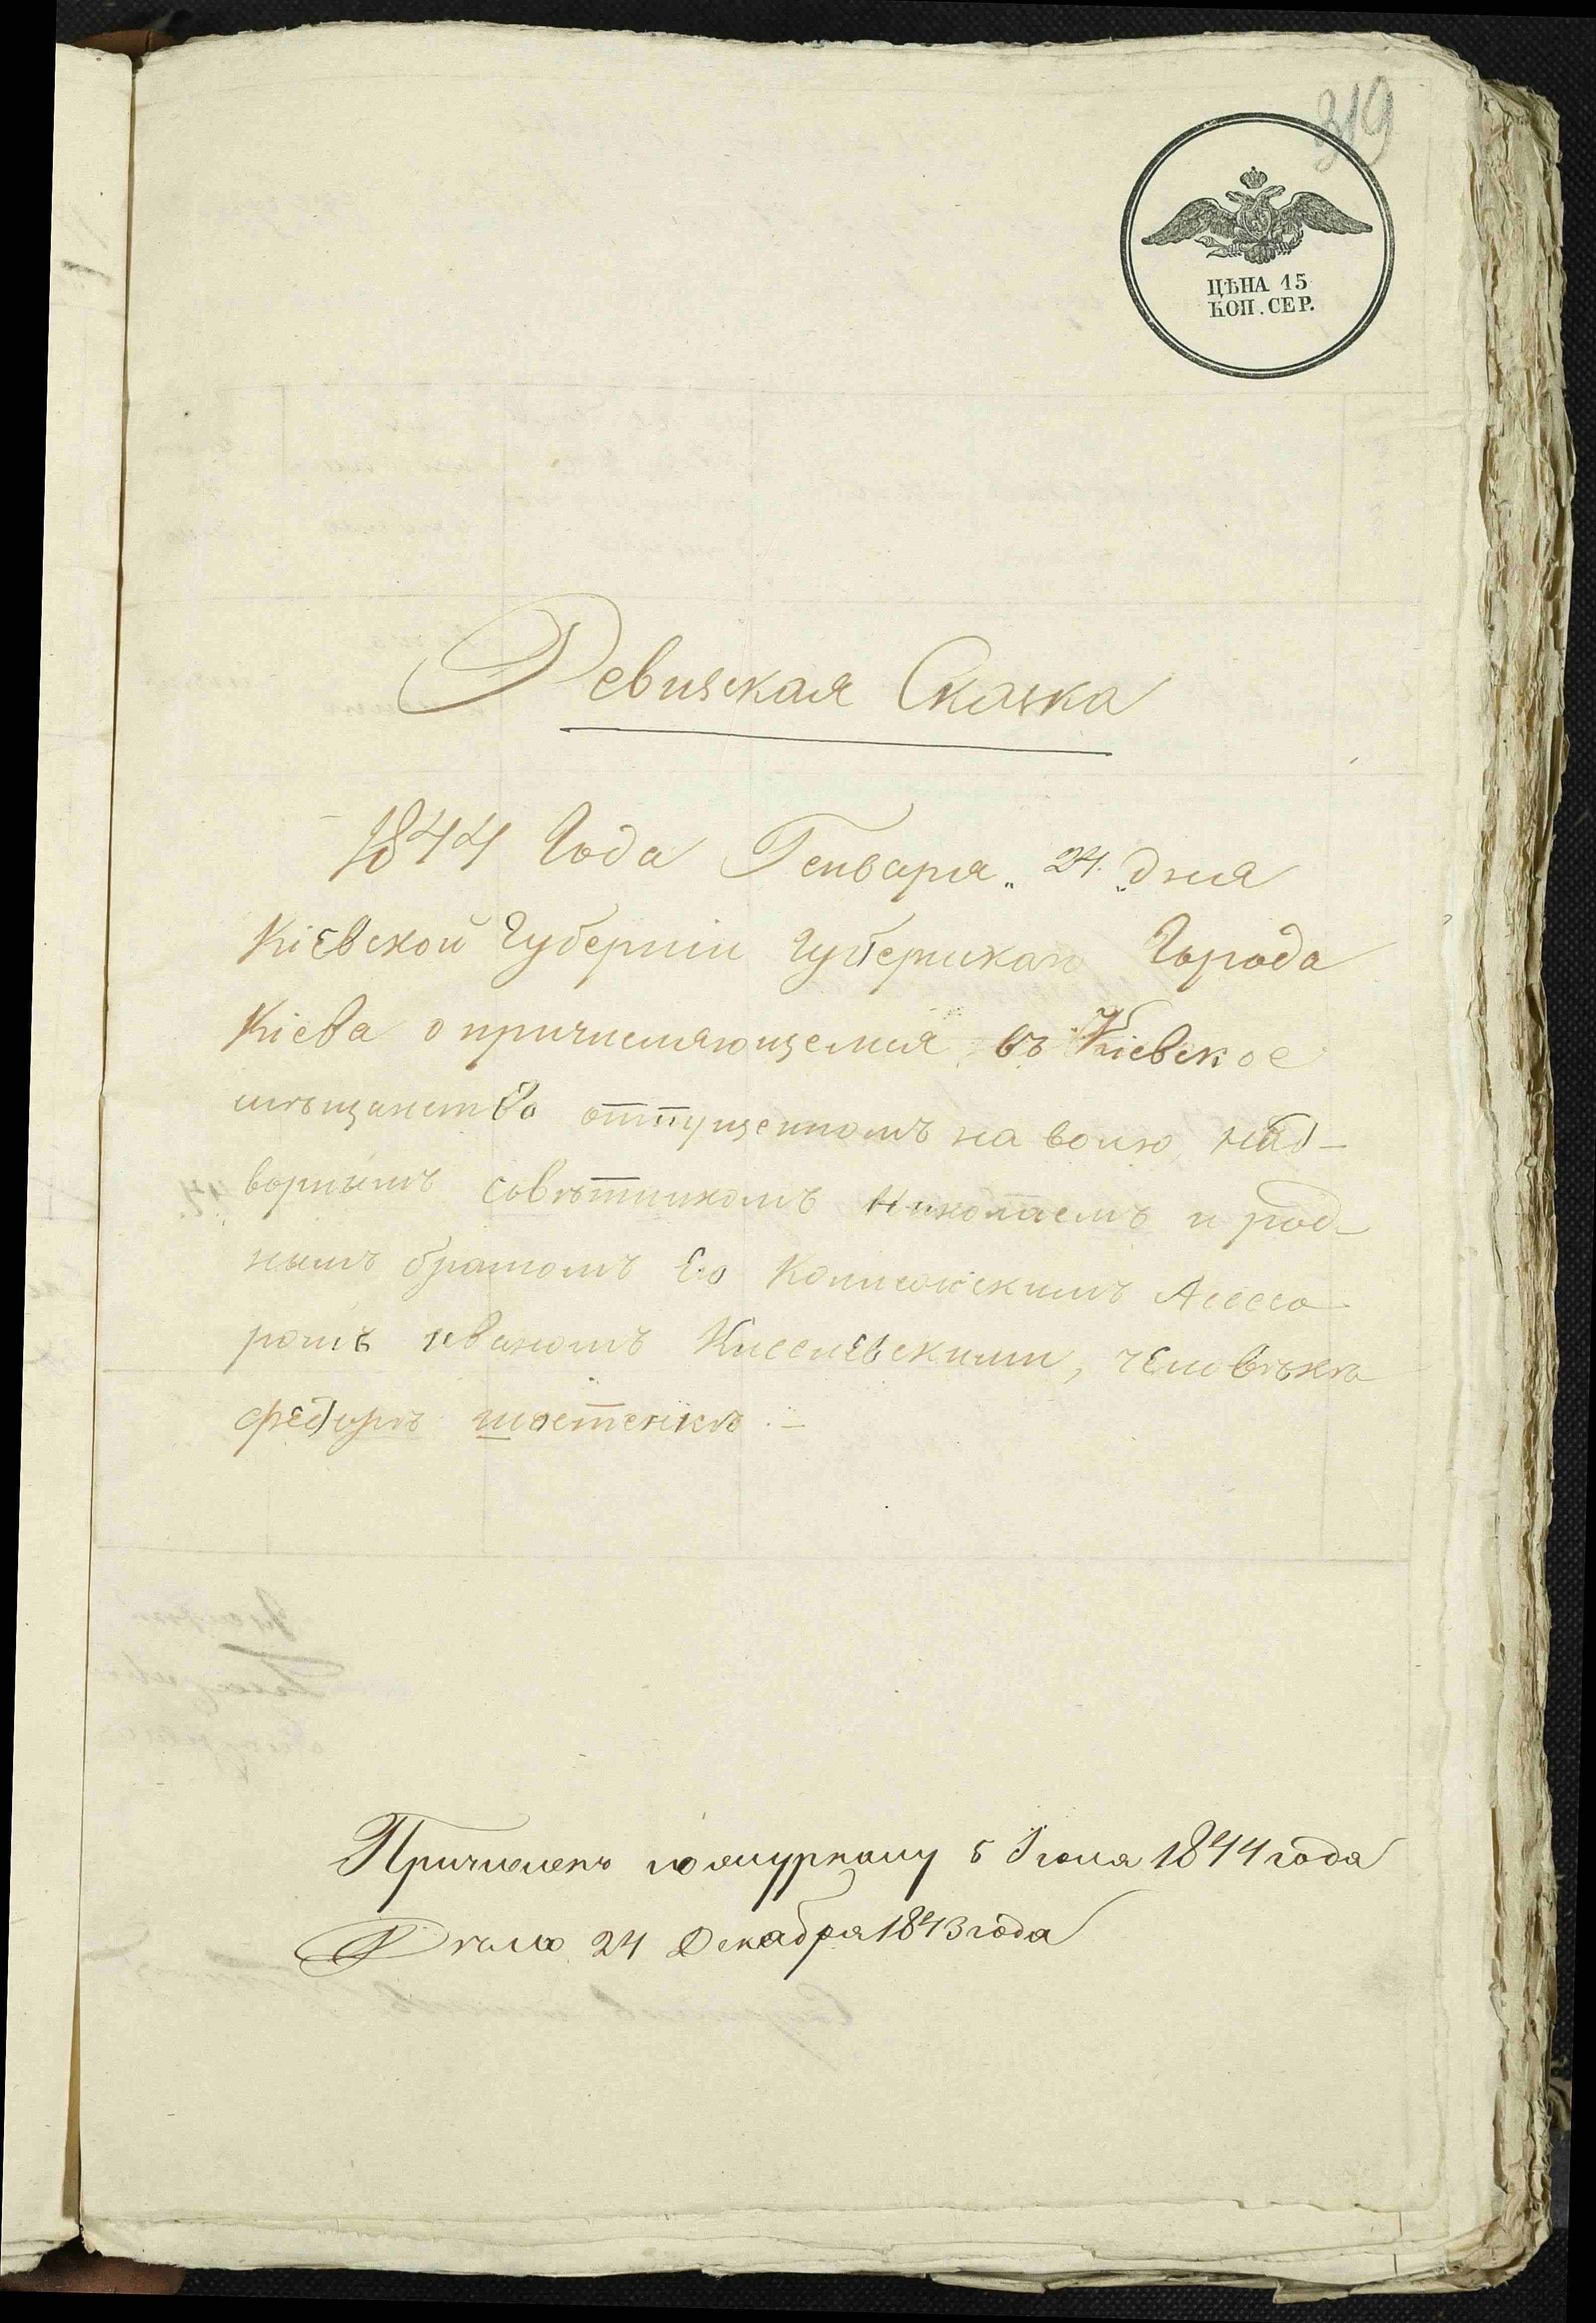 319
ЦѢНА 15
КОП. СЕР.
Ревизская Сказка
1844 Года Генваря „ 24. „ дня
Кіевской Губерніи Губернскаго Города
Кіева о причисляющемся въ Кіевское
мѣщанство отпущенномъ на волю над-
ворнымъ совѣтникомъ Николаемъ и род-
нымъ братомъ Его Колежскимъ Ассесо-
ромъ иваномъ Киселевскими, человѣкѣ
федорѣ шостенкѣ. –
Причисленъ по журналу 5 Іюля 1844 года
Дѣло 24 Декабря 1843 года